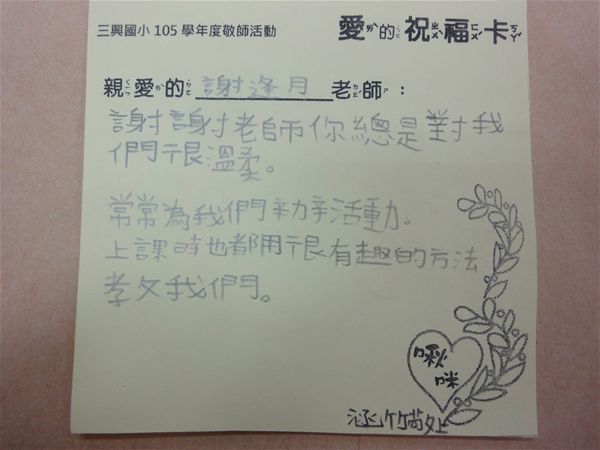 三興國小 105 學年度敬師活動
愛的祝福卡
親愛的 謝逢月 老師：
謝謝老師你總是對我
們很溫柔。
常常為我們辛辛活動。
上課時也都用很有趣的方法
孝文我們。
啾
咪